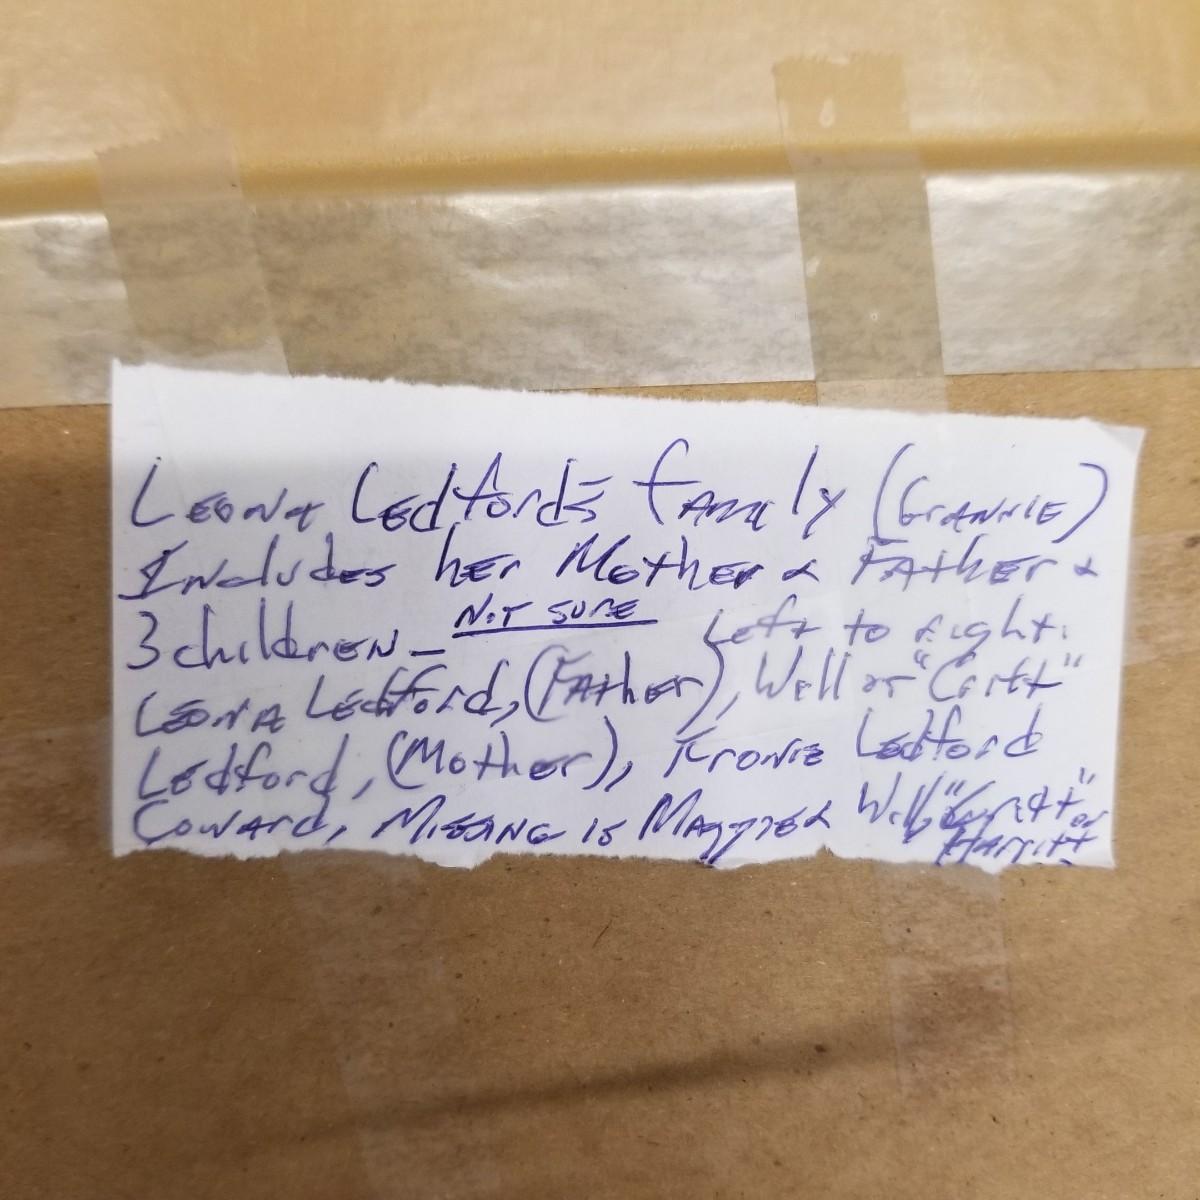 Leona Ledford's family (Grannie)
Includes her Mother & Father &
3 children - Not sure Left to right:
Leona Ledford, (Father), Will or "Critt"
Ledford, (Mother), Kronie Ledford
Coward, Missing is Maggie & Will "Critt" or
Harritt